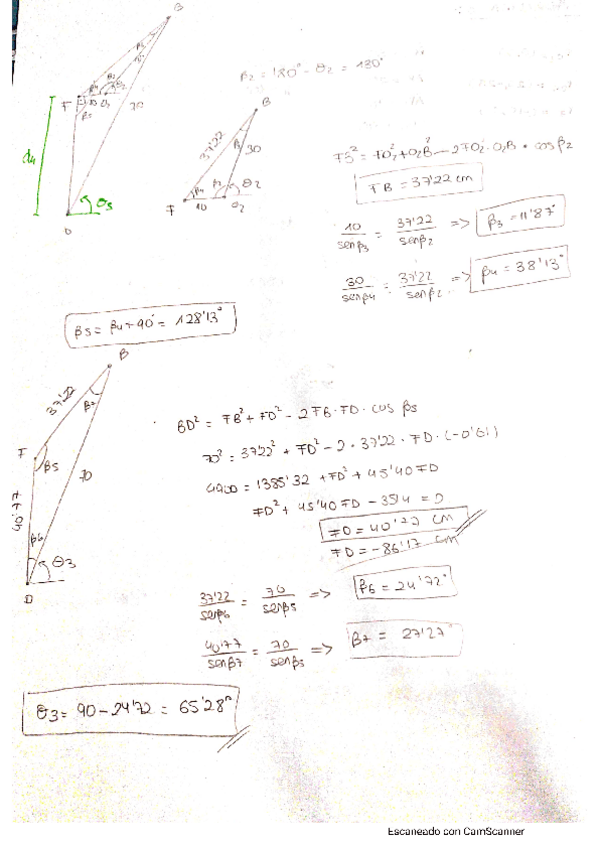 B
β2 = 180° - θ2 = 130°
F
70
d4
θ3
D
B
37'22
30
β4
β2
θ2
F
10
O2
FB² = FO2² + O2B² - 2FO2·O2B · cosβ2
FB = 37'22 cm
10/senβ3 = 37'22/senβ2 => β3 = 11'87°
30/senβ4 = 37'22/senβ2 => β4 = 38'13°
β5 = β4 + 90° = 128'13°
B
37'22
β7
F
β5
70
β6
θ3
D
BD² = FB² + FD² - 2FB·FD · cos β5
70² = 37'22² + FD² - 2 · 37'22 · FD · (-0'61)
4900 = 1385'32 + FD² + 45'40 FD
FD² + 45'40 FD - 3514 = 0
FD = -86'17 cm
37'22/senβ6 = 70/senβ5 => β6 = 24'72°
40'77/senβ7 = 70/senβ5 => β7 = 27'27°
θ3 = 90 - 24'72 = 65'28°
Escaneado con CamScanner